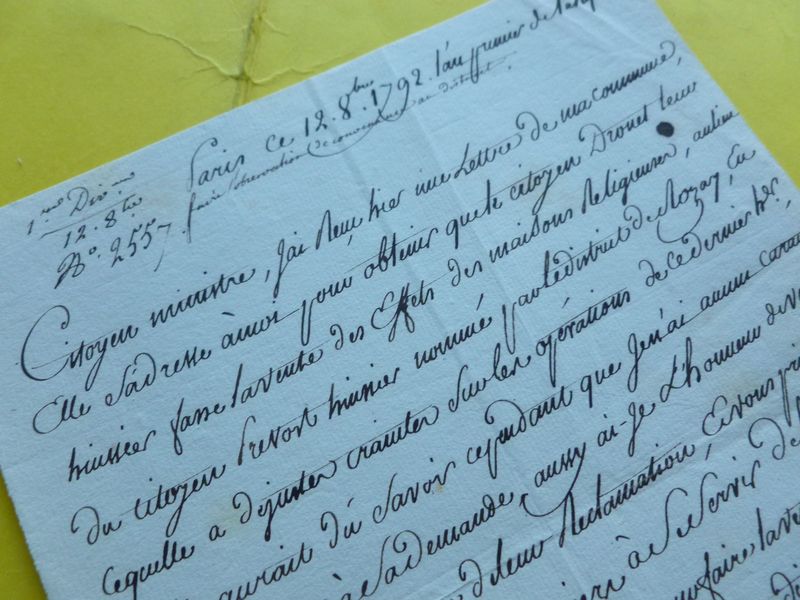 Paris ce 12. 8bre. 1792. l'an premier de la
faire observation de convenance au district.
1ere Divon
12. 8bre
No. 2557
Citoyen ministre, J'ai Reçu hier une Lettre de ma commune,
Elle s'adresse à moi pour obtenir que le citoyen Drouet leur
huissier fasse la vente des Effets des maisons Religieuses, au lieu
du citoyen Prevost huissier nommé par le district de Rozay, Ea
cequelle a dejuster crainter Surler opérations de ce dernier her,
aurait dû Savoir cependant que Jen'ai aucun
à Sa demande, aussy ai-Je L'honneur de
de leur Reclamation, Et vous
à Se Servir de
faire la